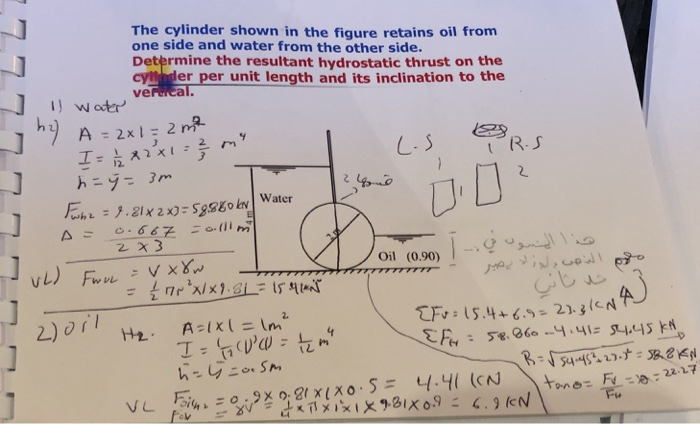 The cylinder shown in the figure retains oil from
one side and water from the other side.
Determine the resultant hydrostatic thrust on the
cylinder per unit length and its inclination to the
vertical.
1) water
hz) A = 2x1 = 2 m²
I = 1/12 x 2³ x 1 = 2/3 m⁴
h = ȳ = 3m
Fwhz = 9.81x2x3 = 58.860 kN
Δ = 0.667 / 2 x 3 = 0.111 m
VL) FwVL = V x γw
= 1/2 πr² x 1 x 9.81 = 15.4 kN
L.S
R.S
2
Water
4 m
2 m
Oil (0.90)
هذا المنسوب في
2) oil
Hz. A = 1x1 = 1m²
I = 1/12 (1)³(1) = 1/12 m⁴
h = ȳ = 0.5m
Foil Hz = 0.9 x 9.81 x 1 x 0.5 = 4.41 kN
VL Fov = γV = 1/4 x π x 1² x 1 x 9.81 x 0.9 = 6.9 kN
ΣFv = 15.4 + 6.9 = 22.3 kN
ΣFH = 58.860 - 4.41 = 54.45 kN
R = √54.45² + 22.3² = 58.8 kN
tan θ = Fv / FH = θ = 22.27